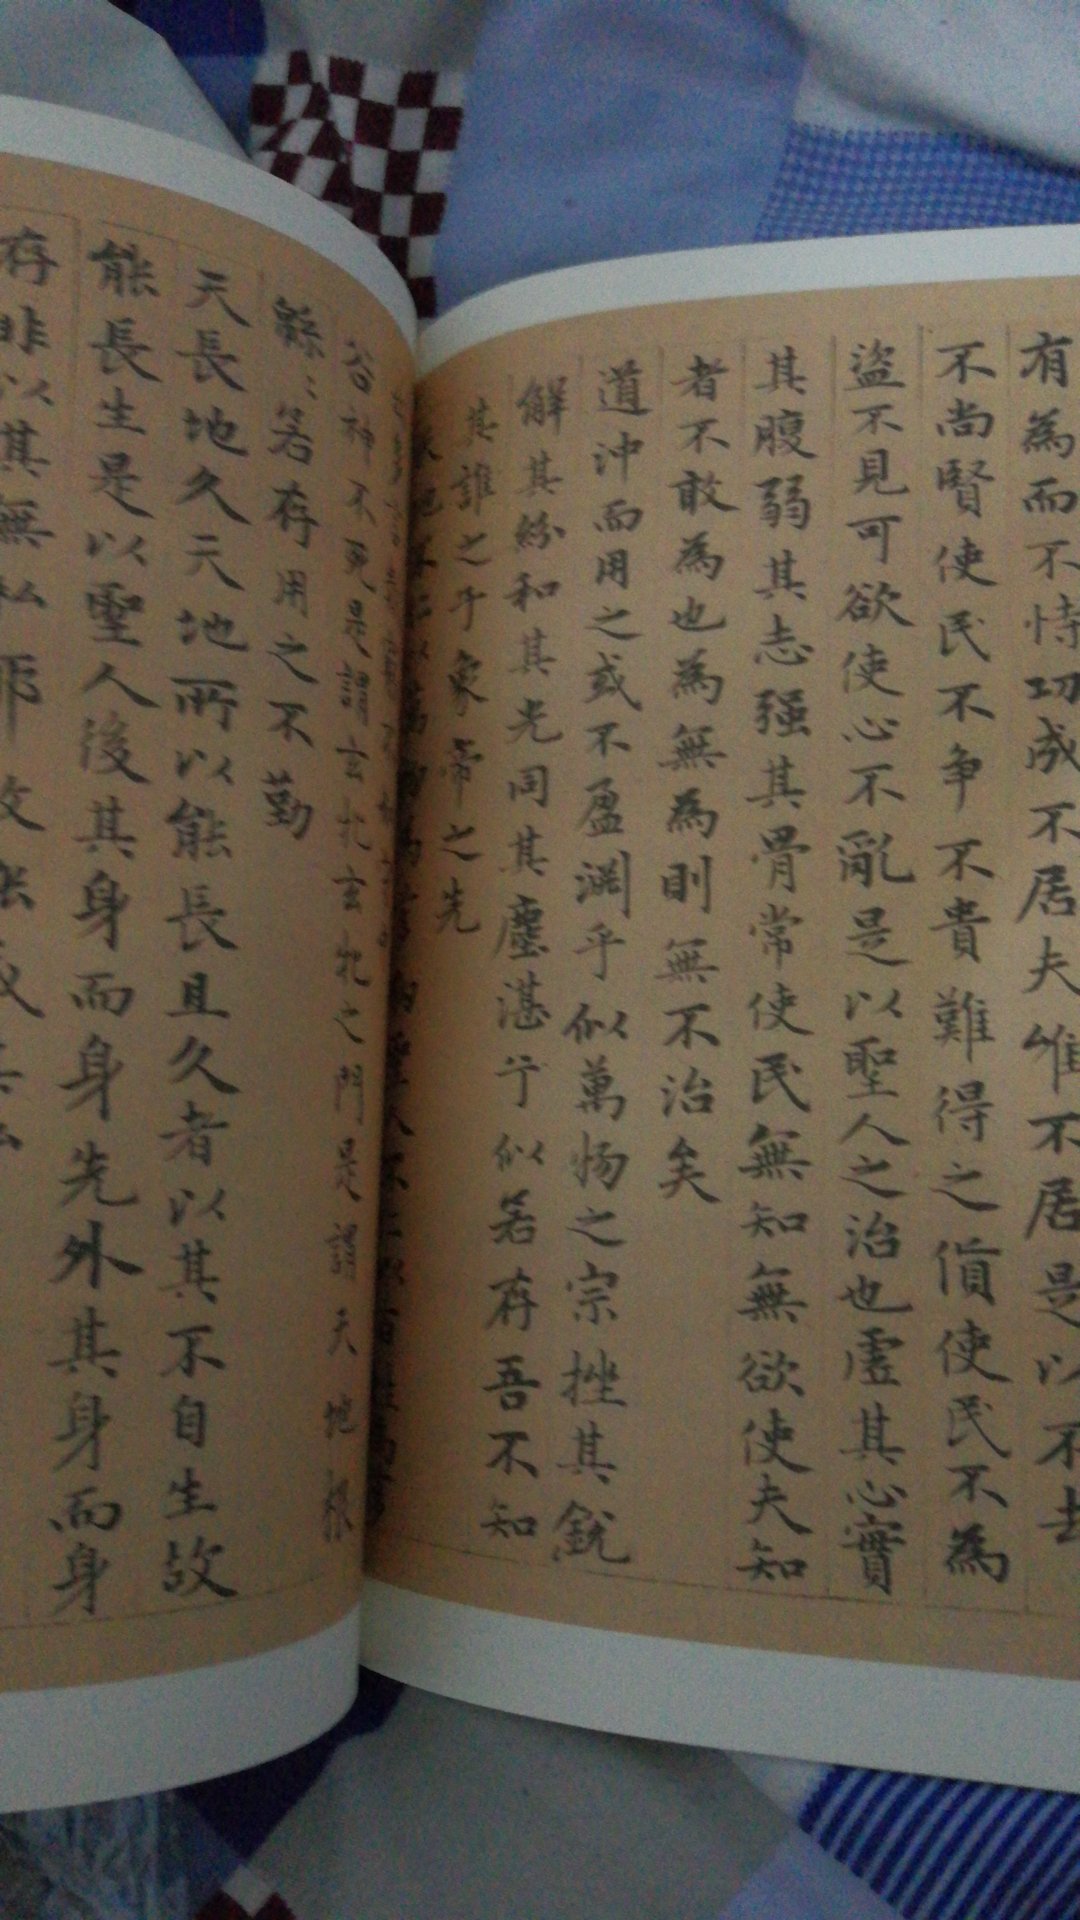 有為而不恃功成不居夫惟不居是以不去
不尚賢使民不争不貴難得之貨使民不為
盜不見可欲使心不亂是以聖人之治也虛其心實
其腹弱其志强其骨常使民無知無欲使夫知
者不敢為也為無為則無不治矣
道沖而用之或不盈淵乎似萬物之宗挫其銳
解其紛和其光同其塵湛兮似若存吾不知
其誰之子象帝之先
谷神不死是謂玄牝玄牝之門是謂天地根
緜〻若存用之不勤
天長地久天地所以能長且久者以其不自生故
能長生是以聖人後其身而身先外其身而身
存非以其無私耶故能成其私